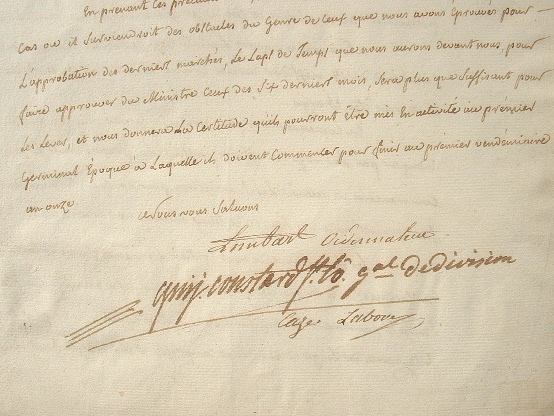 En prenant ces
Cas ou il Surviendroit des obstacles du Genre de Ceux que nous avons Eprouver pour
L'approbation des derniers marchés, Le Laps de Temps que nous aurons devant nous, pour
faire approuver du Ministre Ceux des Six derniers mois, Sera plus que Suffisant pour
Les Lever, et nous donnera La Certitude quils pourront être mis En activité au premier
Germinal Epoque à Laquelle ils doivent Commencer pour finir au premier vendémiaire
an onze
Nous vous Saluons
Lambart Ordonnateur
constard gal de division